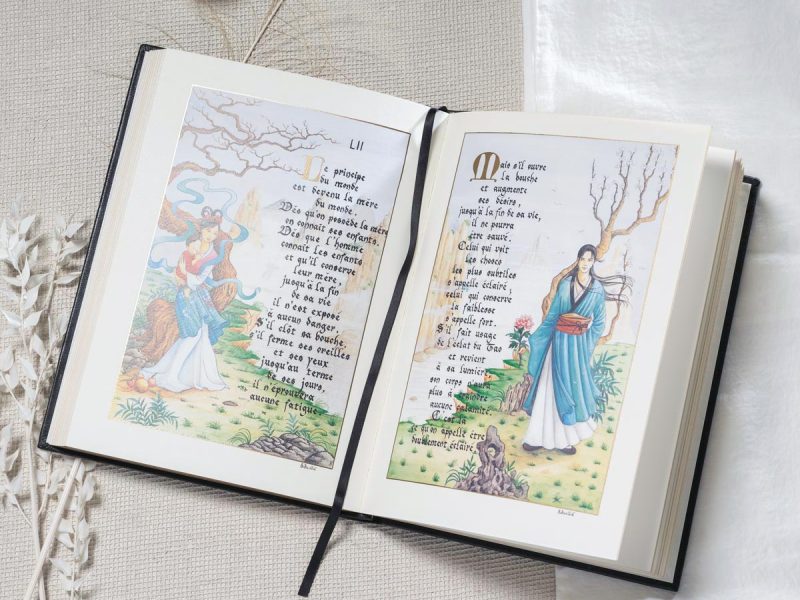 LII
Le principe
du monde
est devenu la mère
du monde.
Dès qu'on possède la mère
on connaît ses enfants.
Dès que l'homme
connaît les enfants
et qu'il conserve
leur mère,
jusqu'à la fin
de sa vie
il n'est exposé
à aucun danger.
S'il clôt sa bouche,
s'il ferme ses oreilles
et ses yeux
jusqu'au terme
de ses jours,
il n'éprouvera
aucune fatigue.
Mais s'il ouvre
la bouche
et augmente
ses désirs,
jusqu'à la fin de sa vie,
il ne pourra
être sauvé.
Celui qui voit
les choses
les plus subtiles
s'appelle éclairé;
celui qui conserve
la faiblesse
s'appelle fort.
S'il fait usage
de l'éclat du Tao
et revient
à sa lumière,
son corps n'aura
plus à craindre
aucune calamité.
C'est là
ce qu'on appelle être
doublement éclairé.